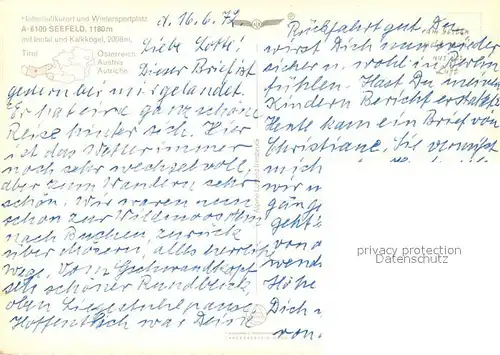 Höhenluftkurort und Wintersportplatz
A-6100 SEEFELD, 1180m
mit Inntal und Kalkkögel, 2808m,
Tirol
Österreich
Austria
Autriche
d. 16.6.72
Liebe Lotte!
Dieser Brief ist
gestern bei mir gelandet.
Er hat eine ganz schöne
Reise hinter sich. Hier
ist das Wetter immer
noch sehr wechselvoll,
aber zum Wandern sehr
schön. Wir waren nun
schon zur Wildmoosalm
nach Buchen, zurück
über Mösern, alles herrliche
Wege. Vom Gschwandtkopf
sehr schöner Rundblick,
oben Liegestuhlpause.
Hoffentlich war Deine
Rückfahrt gut. Du
wirst Dich nun wieder
sicher u. wohl in Berlin
fühlen. Hast Du meinen
Kindern Bericht erstattet?
Heute kam ein Brief von
Christiane. Sie vermißt
mich
wir
gänge
geht
von
wend
Höhe
Dich
von
privacy protection
Datenschutz